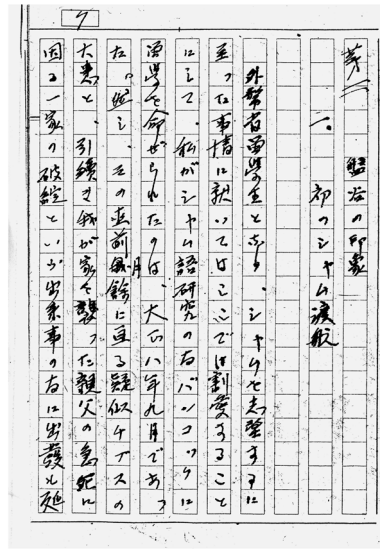 7
第二 盤谷の印象
一、初のシャム渡航
外務省留學生となり、シャムを志望するに
至った事情に就いてはここでは割愛すること
にして、私がシャム語研究の為バンコックに
留學を命ぜられたのは、大正八年九月であっ
た。然し、その直前月餘に亘る疑似チブスの
大患と、引續き我が家を襲った親父の急死に
因る一家の破綻といふ出來事の為に出發は延